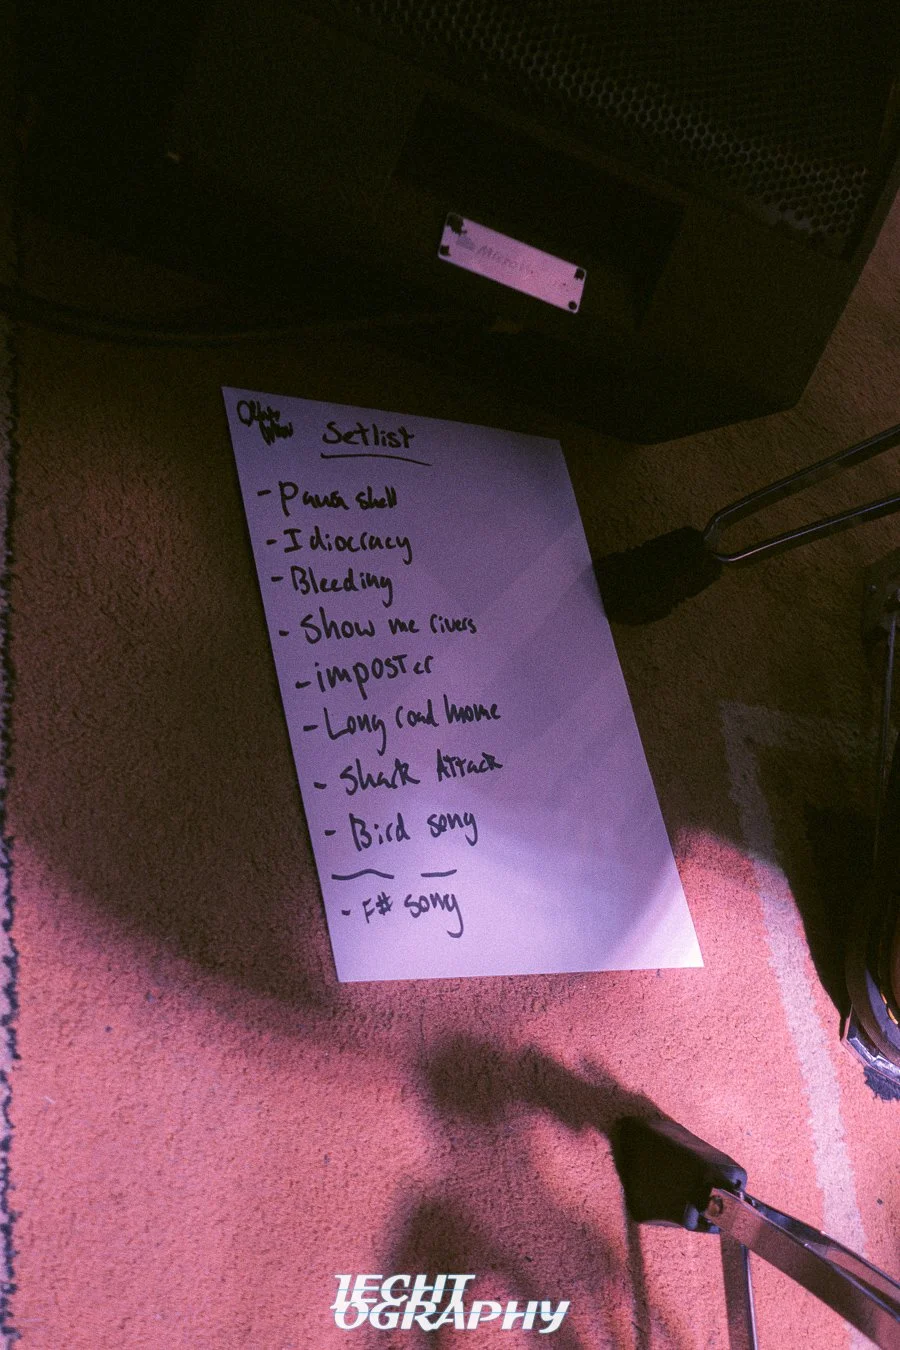 Setlist
- Paua shell
- Idiocracy
- Bleeding
- Show me rivers
- imposter
- Long road home
- Shark Attack
- Bird song
- F# song
1ECHT
OGRAPHY